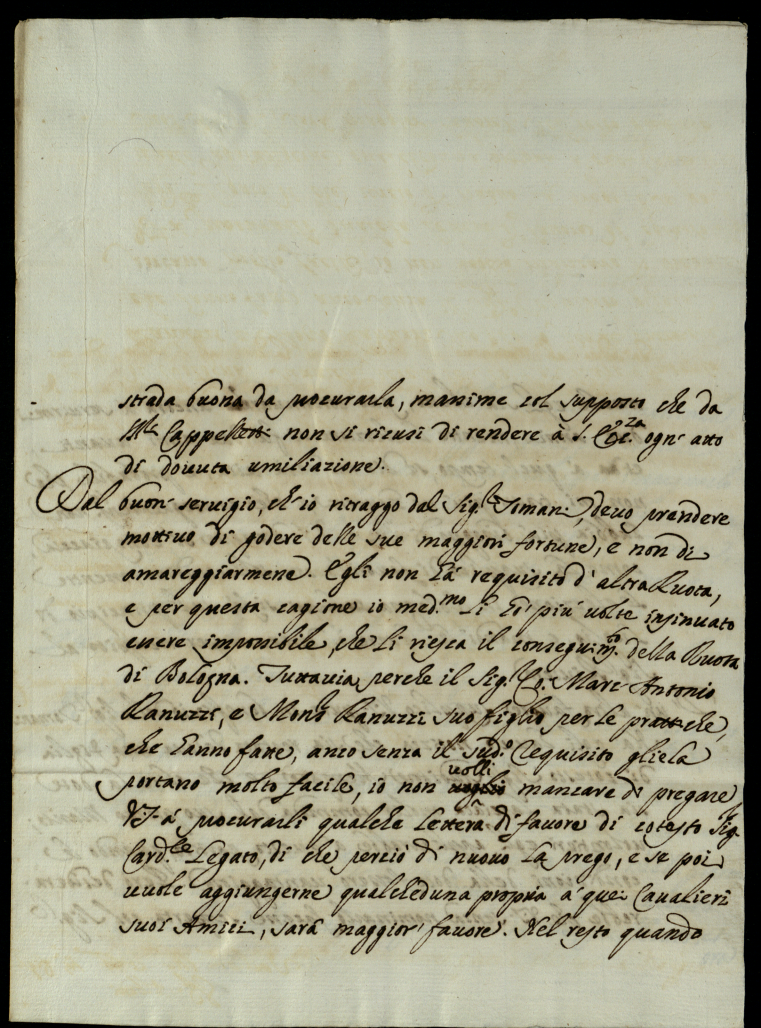 strada buona da procurarla, massime col supposto che da
M.r Cappelletti non si ricusi di rendere à S. Ecc.za ogni atto
di dovuta umiliazione.
Dal buon servigio, ch'io ritraggo dal Sig.r Tomani, devo prendere
mottivo di godere delle sue maggiori fortune, e non di
amareggiarmene. Egli non hà requisito d'altra Ruota,
e per questa cagione io med.mo li hò più volte insinuato
essere impossibile, che li riesca il consegui.to della Ruota
di Bologna. Tuttavia perche il Sig.r Co. Marc Antonio
Ranuzzi, e Mons.r Ranuzzi suo figlio per le prattiche,
che hanno fatte, anco senza il sud.o requisito gliela
portano molto facile, io non volli mancare di pregare
V.S. à procurarli qualche lettera di favore di cotesto Sig.
Card.le Legato, di che perciò di nuovo La prego, e se poi
vuole aggiungerne qualcheduna propria à quei Cavalieri
suoi Amici, sarà maggior favore. Nel resto quando